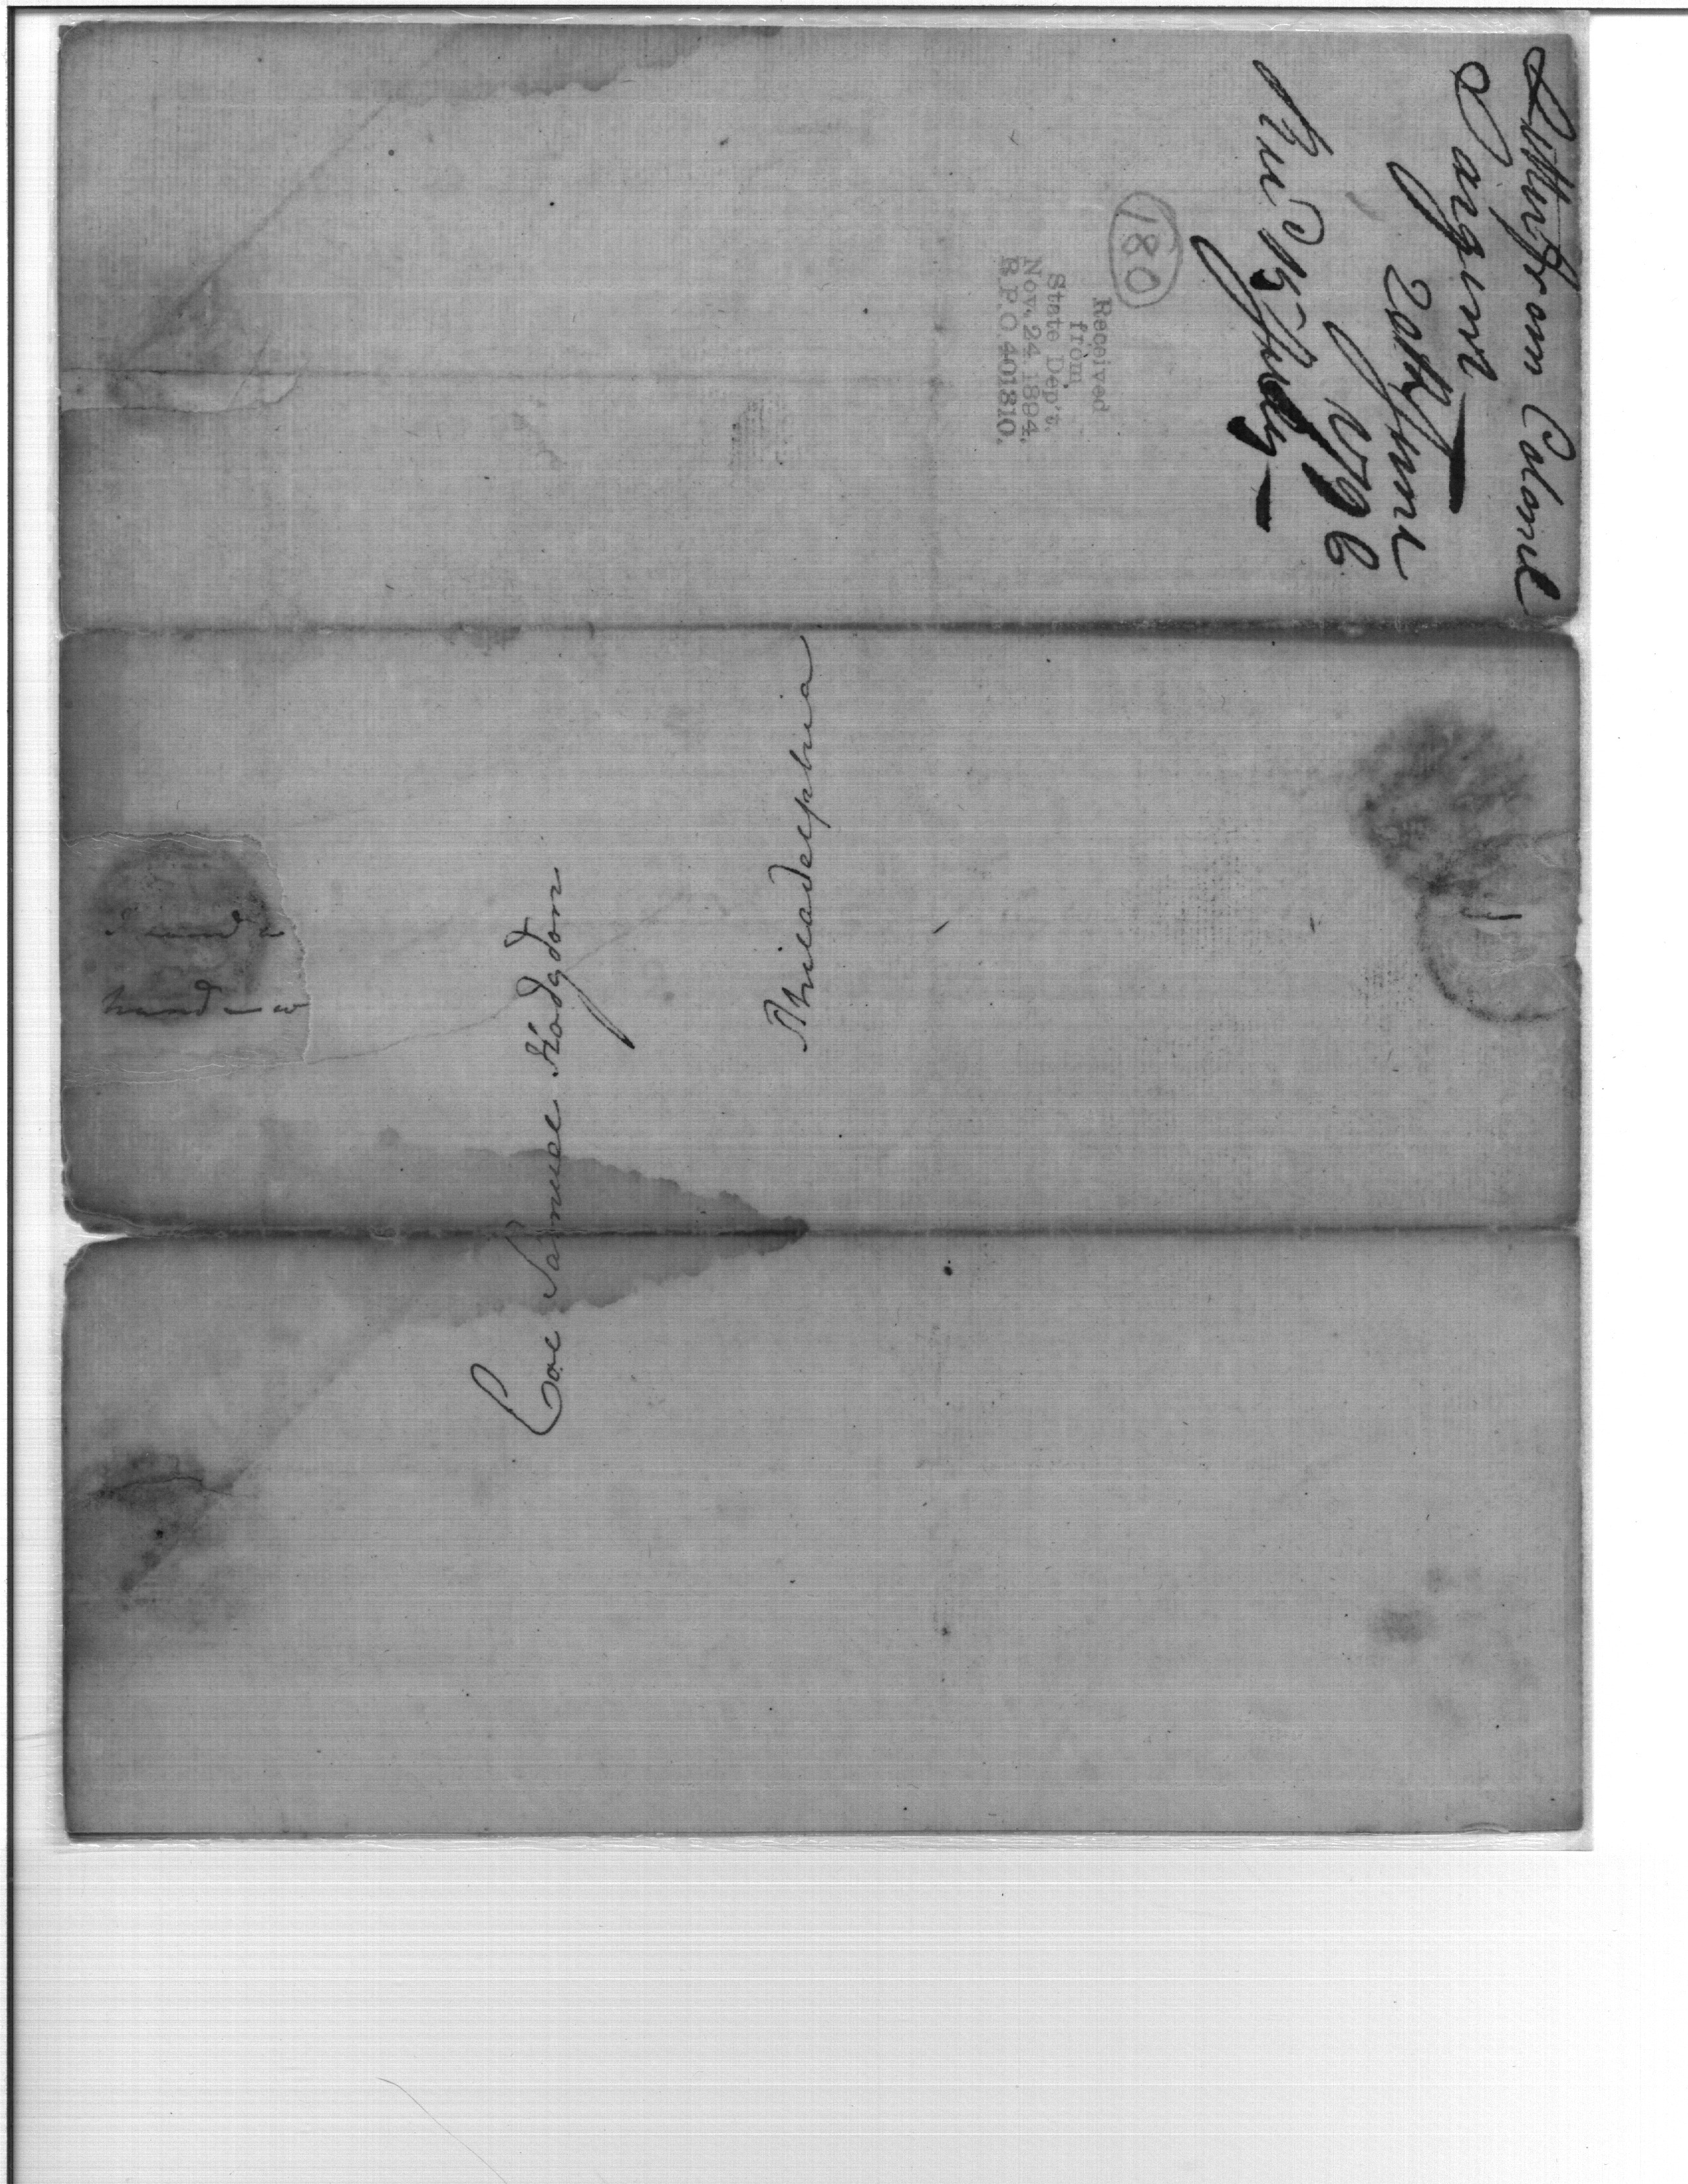 Letter from Colonel
Sargent
20th June
1796
Rec'd 15 July
180
Received
from
State Dep't.
Nov. 24 1894.
R.P.O. 401310.
Col Samuel Hodgdon
Philadelphia
hand